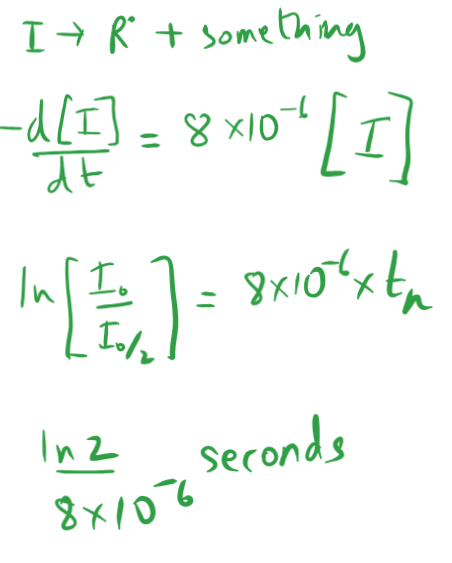 I → R• + something
-d[I]/dt = 8×10⁻⁶ [I]
ln[I₀/I₀/2] = 8×10⁻⁶ × tₕ
ln 2/8×10⁻⁶ seconds